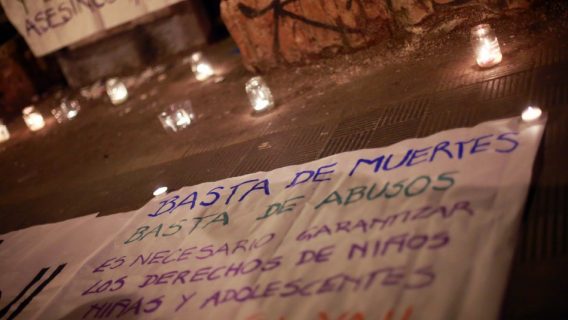 ASESINOS
BASTA DE MUERTES
BASTA DE ABUSOS
ES NECESARIO GARANTIZAR
LOS DERECHOS DE NIÑOS
NIÑAS Y ADOLESCENTES